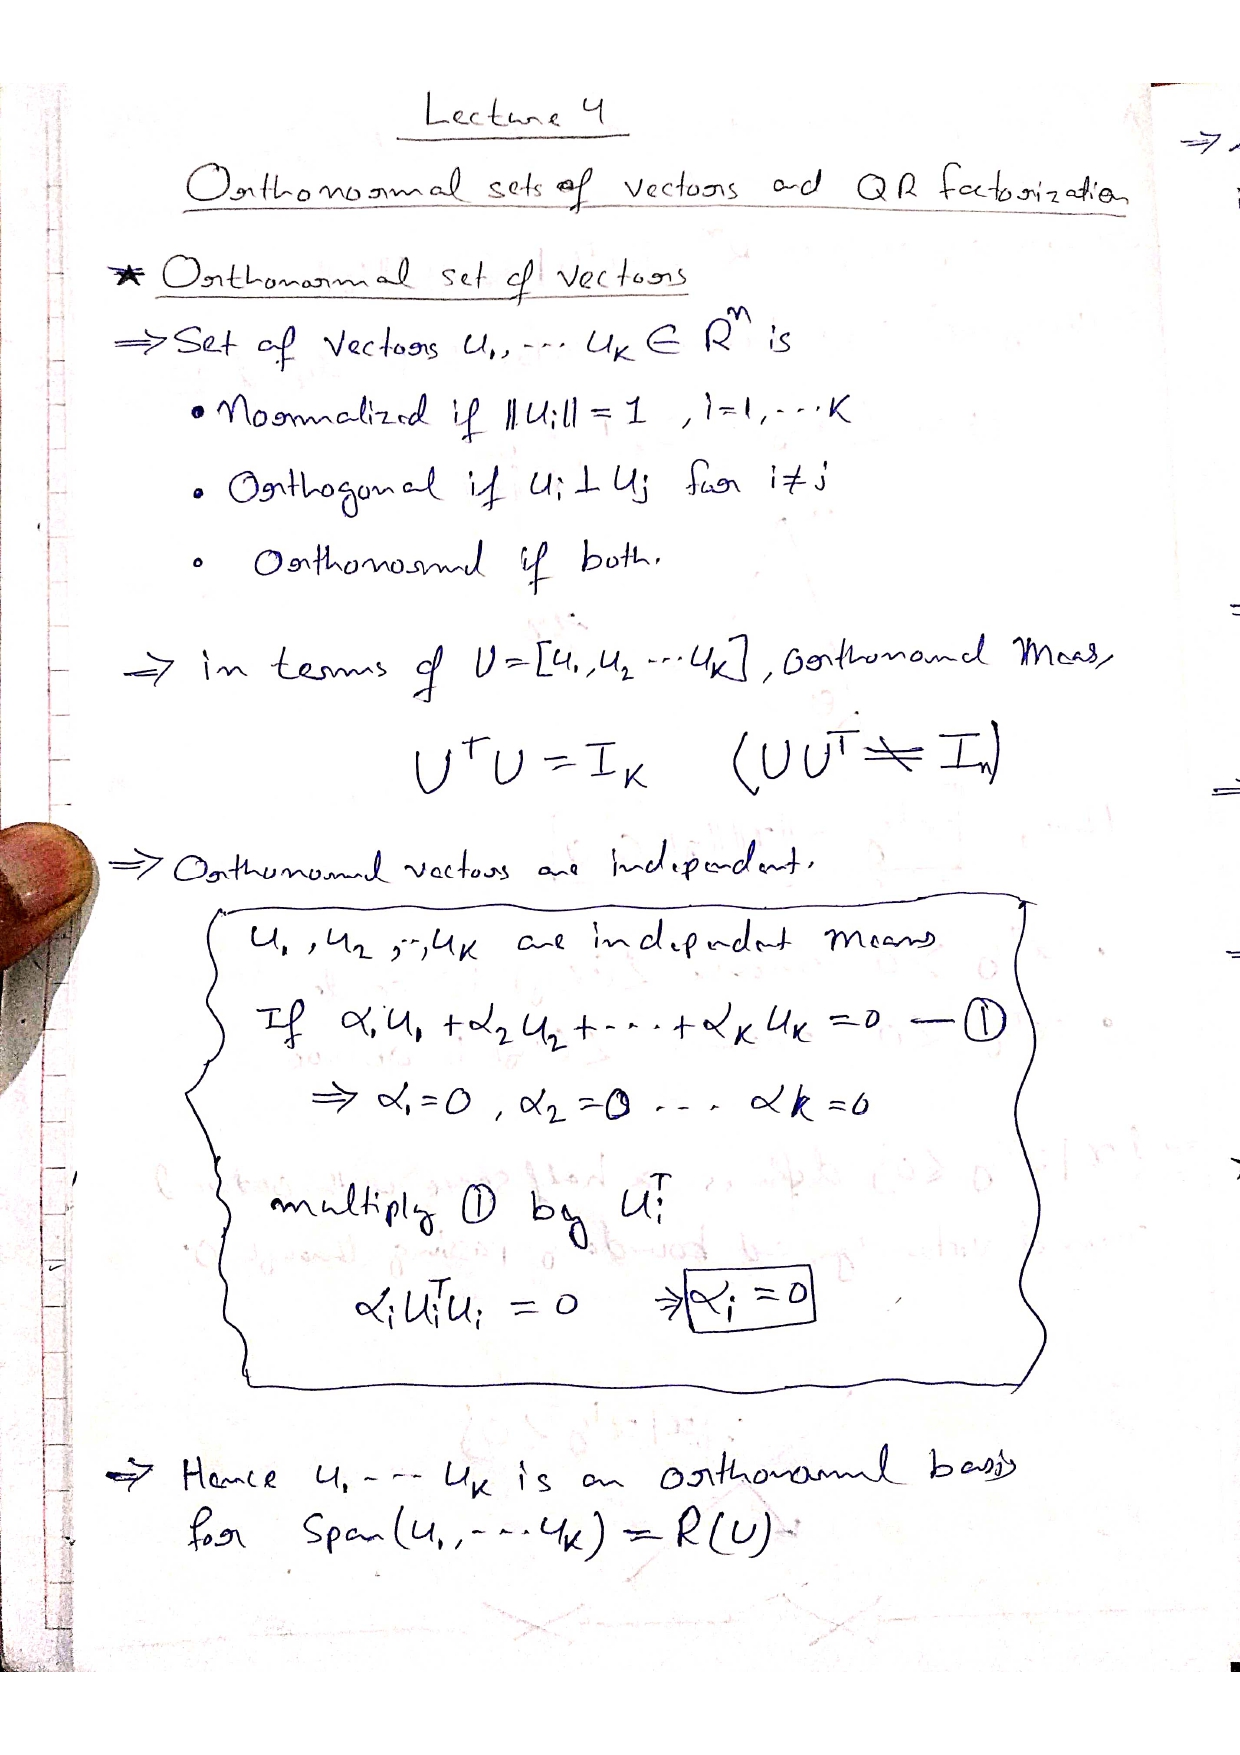 Lecture 4
Orthonormal sets of vectors and QR factorization
★ Orthonormal set of vectors
⇒ Set of vectors u₁, ... uₖ ∈ Rⁿ is
• Normalized if ||uᵢ|| = 1 , i=1, ... k
• Orthogonal if uᵢ ⊥ uⱼ for i≠j
• Orthonormal if both.
⇒ in terms of U = [u₁, u₂ ... uₖ], orthonormal means,
UᵀU = Iₖ (UUᵀ ≠ Iₙ)
⇒ Orthonormal vectors are independent.
u₁, u₂, .., uₖ are independent means
If α₁u₁ + α₂u₂ + ... + αₖuₖ = 0 — ①
⇒ α₁=0, α₂=0 ... αk=0
multiply ① by uᵢᵀ
αᵢuᵢᵀuᵢ = 0 ⇒ αᵢ = 0
⇒ Hence u₁ ... uₖ is an orthonormal basis
for Span(u₁, ... uₖ) = R(U)